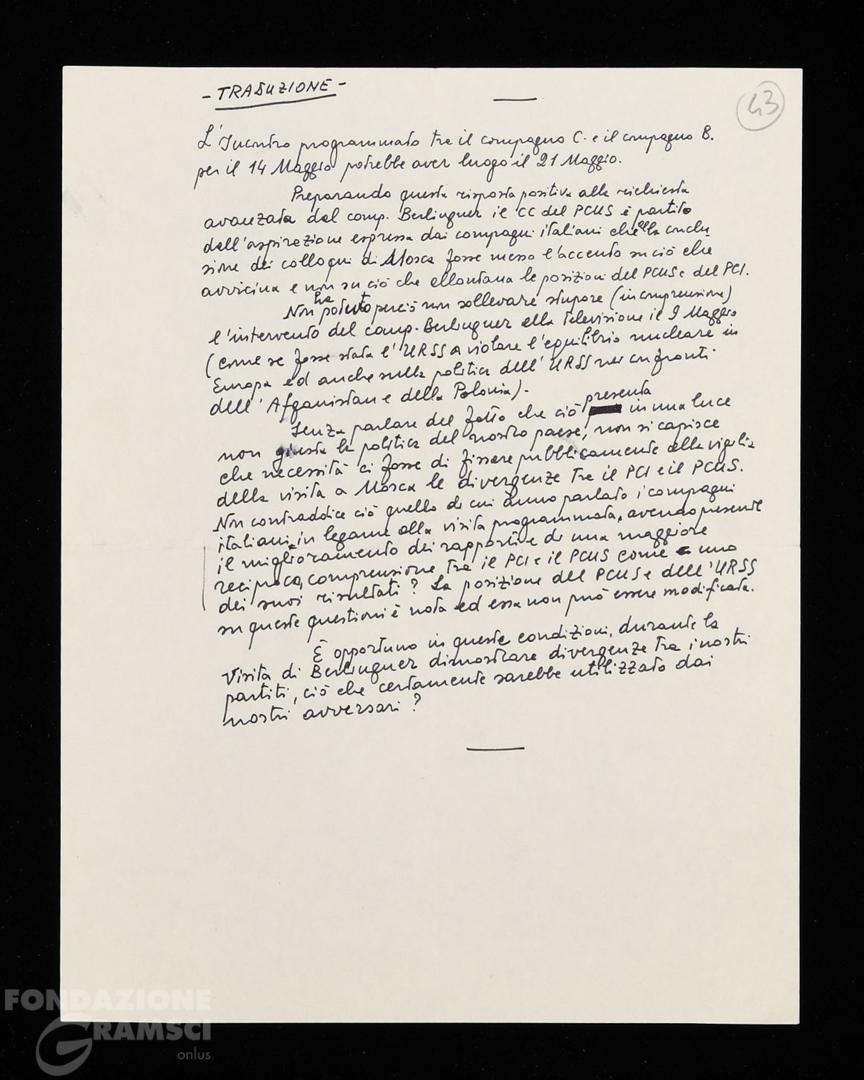 - TRADUZIONE -
43
L'Incontro programmato tra il compagno C. e il compagno B.
per il 14 Maggio potrebbe aver luogo il 21 Maggio.
Preparando questa risposta positiva alla richiesta
avanzata dal comp. Berlinguer il CC del PCUS è partito
dall'aspirazione espressa dai compagni italiani che alla conclu
sione dei colloqui di Mosca fosse messo l'accento su ciò che
avvicina e non su ciò che allontana le posizioni del PCUS e del PCI.
Non ha potuto perciò non sollevare stupore (incomprensione)
l'intervento del comp. Berlinguer alla Televisione il 9 Maggio
(come se fosse stata l'URSS a violare l'equilibrio nucleare in
Europa ed anche sulla politica dell'URSS nei confronti
dell'Afganistan e della Polonia).
Senza parlare del fatto che ciò presenta in una luce
non giusta la politica del nostro paese, non si capisce
che necessità ci fosse di fissare pubblicamente alla vigilia
della visita a Mosca le divergenze tra il PCI e il PCUS.
Non contraddice ciò quello di cui anno parlato i compagni
italiani, in legame alla visita programmata, avendo presente
il miglioramento dei rapporti e di una maggiore
reciproca comprensione tra il PCI e il PCUS come uno
dei suoi risultati? La posizione del PCUS e dell'URSS
su queste questioni è nota ed essa non può essere modificata.
È opportuno in queste condizioni, durante la
visita di Berlinguer dimostrare divergenze tra i nostri
partiti, ciò che certamente sarebbe utilizzato dai
nostri avversari?
FONDAZIONE
GRAMSCI
onlus